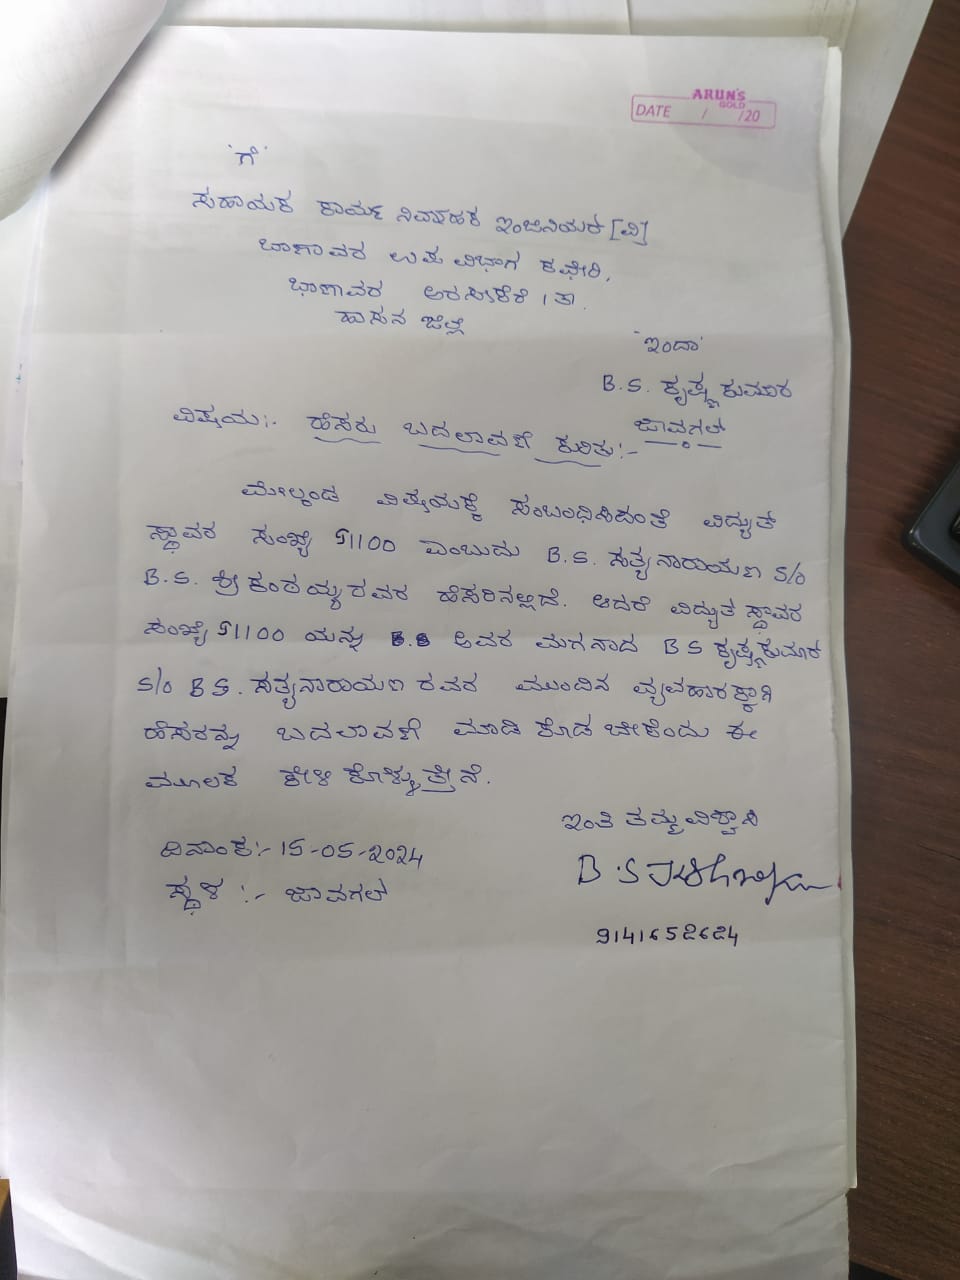 ARUN'S
GOLD
DATE / /20
'ಗೆ'
ಸಹಾಯಕ ಕಾರ್ಯ ನಿರ್ವಾಹಕ ಇಂಜಿನಿಯರ [ವಿ]
ಬಾಣಾವರ ಉಪ ವಿಭಾಗ ಕಛೇರಿ,
ಬಾಣಾವರ ಅರಸೀಕೆರೆ / ತಾ.
ಹಾಸನ ಜಿಲ್ಲೆ
"ಇಂದಾ"
B.S. ಕೃಷ್ಣ ಕುಮಾರ
ಜಾವಗಲ್
ವಿಷಯ:- ಹೆಸರು ಬದಲಾವಣೆ ಕುರಿತು:-
ಮೇಲ್ಕಂಡ ವಿಷಯಕ್ಕೆ ಸಂಬಂಧಿಸಿದಂತೆ ವಿದ್ಯುತ
ಸ್ಥಾವರ ಸಂಖ್ಯೆ 51100 ಎಂಬುದು B.S. ಸತ್ಯನಾರಾಯಣ S/o
B.S. ಶ್ರೀಕಂಠಯ್ಯ ರವರ ಹೆಸರಿನಲ್ಲಿದೆ. ಆದರೆ ವಿದ್ಯುತ ಸ್ಥಾವರ
ಸಂಖ್ಯೆ 51100 ಯನ್ನು B.S ಅವರ ಮಗನಾದ B S ಕೃಷ್ಣಕುಮಾರ
S/o B S. ಸತ್ಯನಾರಾಯಣ ರವರ ಮುಂದಿನ ವ್ಯವಹಾರಕ್ಕಾಗಿ
ಹೆಸರನ್ನು ಬದಲಾವಣೆ ಮಾಡಿ ಕೊಡ ಬೇಕೆಂದು ಈ
ಮೂಲಕ ಕೇಳಿ ಕೊಳ್ಳುತ್ತೇನೆ.
ಇಂತಿ ತಮ್ಮ ವಿಶ್ವಾಸಿ
ದಿನಾಂಕ:- 15-05-2024
B.S
ಸ್ಥಳ :- ಜಾವಗಲ್
9141652624